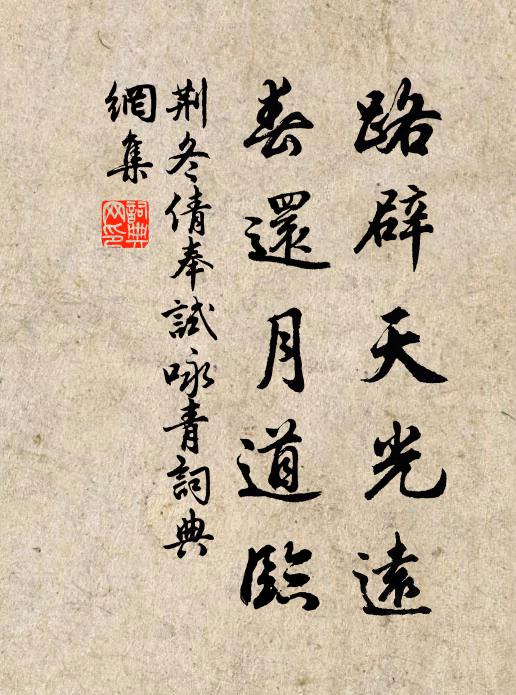 路辟天光遠
春還月道臨
荆冬倩奉試咏青詞典
網集
詞典網印